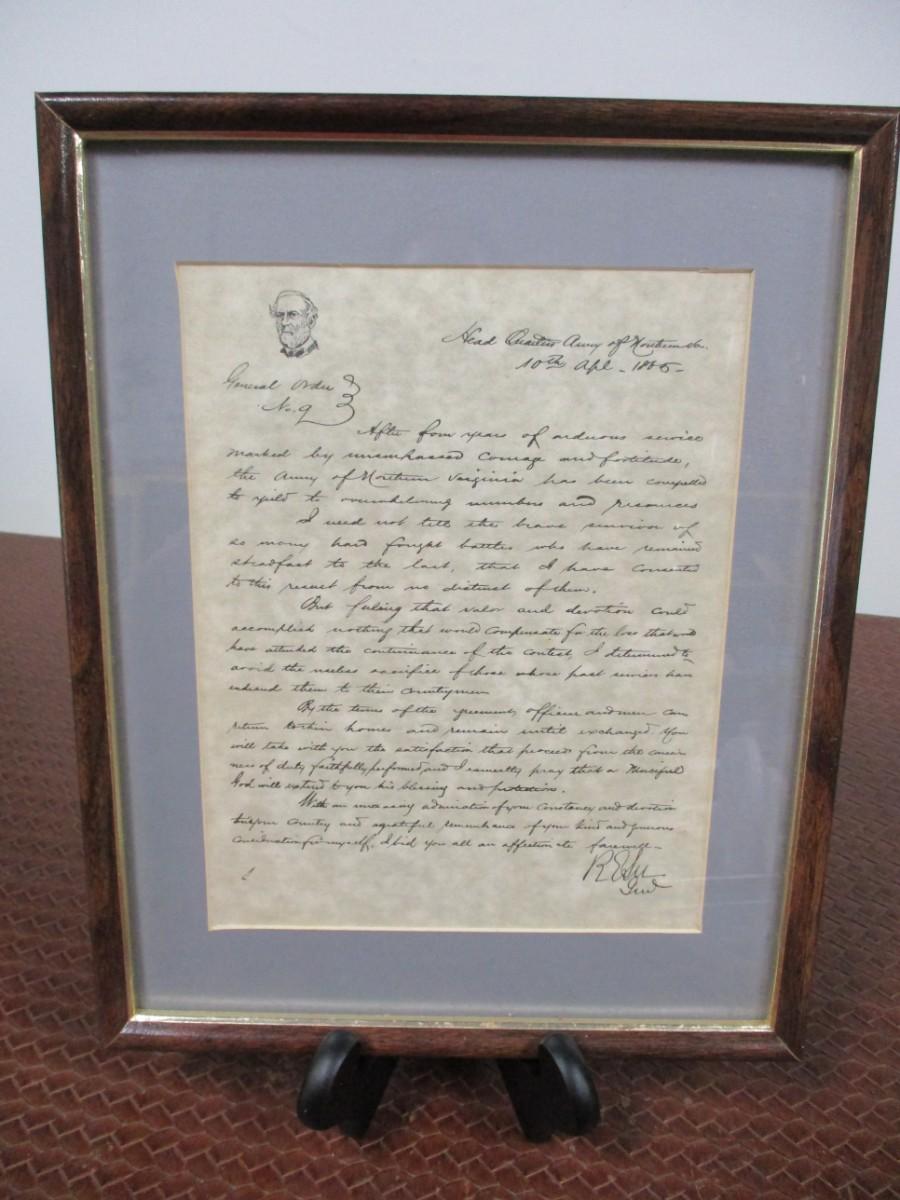 Head Quarters Army of Northern Va.
10th Apl - 1865 -
General Order
No. 9
After four years of arduous service
marked by unsurpassed Courage and fortitude,
the Army of Northern Virginia has been compelled
to yield to overwhelming numbers and resources
I need not tell the brave survivor of
so many hard fought battles who have remained
steadfast to the last, that I have Consented
to this result from no distrust of them.
But feeling that valor and devotion could
accomplish nothing that would Compensate for the loss that would
have attended the continuance of the contest, I determined to
avoid the useless sacrifice of those whose past services have
endeared them to their Countrymen
By the terms of the agreement, officers and men can
return to their homes and remain until exchanged. You
will take with you the satisfaction that proceeds from the conscious
ness of duty faithfully performed, and I earnestly pray that a Merciful
God will extend to you his blessing and protection.
With an unceasing admiration of your Constancy and devotion
to your Country and a grateful remembrance of your kind and generous
Consideration for myself, I bid you all an affectionate farewell -
R E Lee
Genl